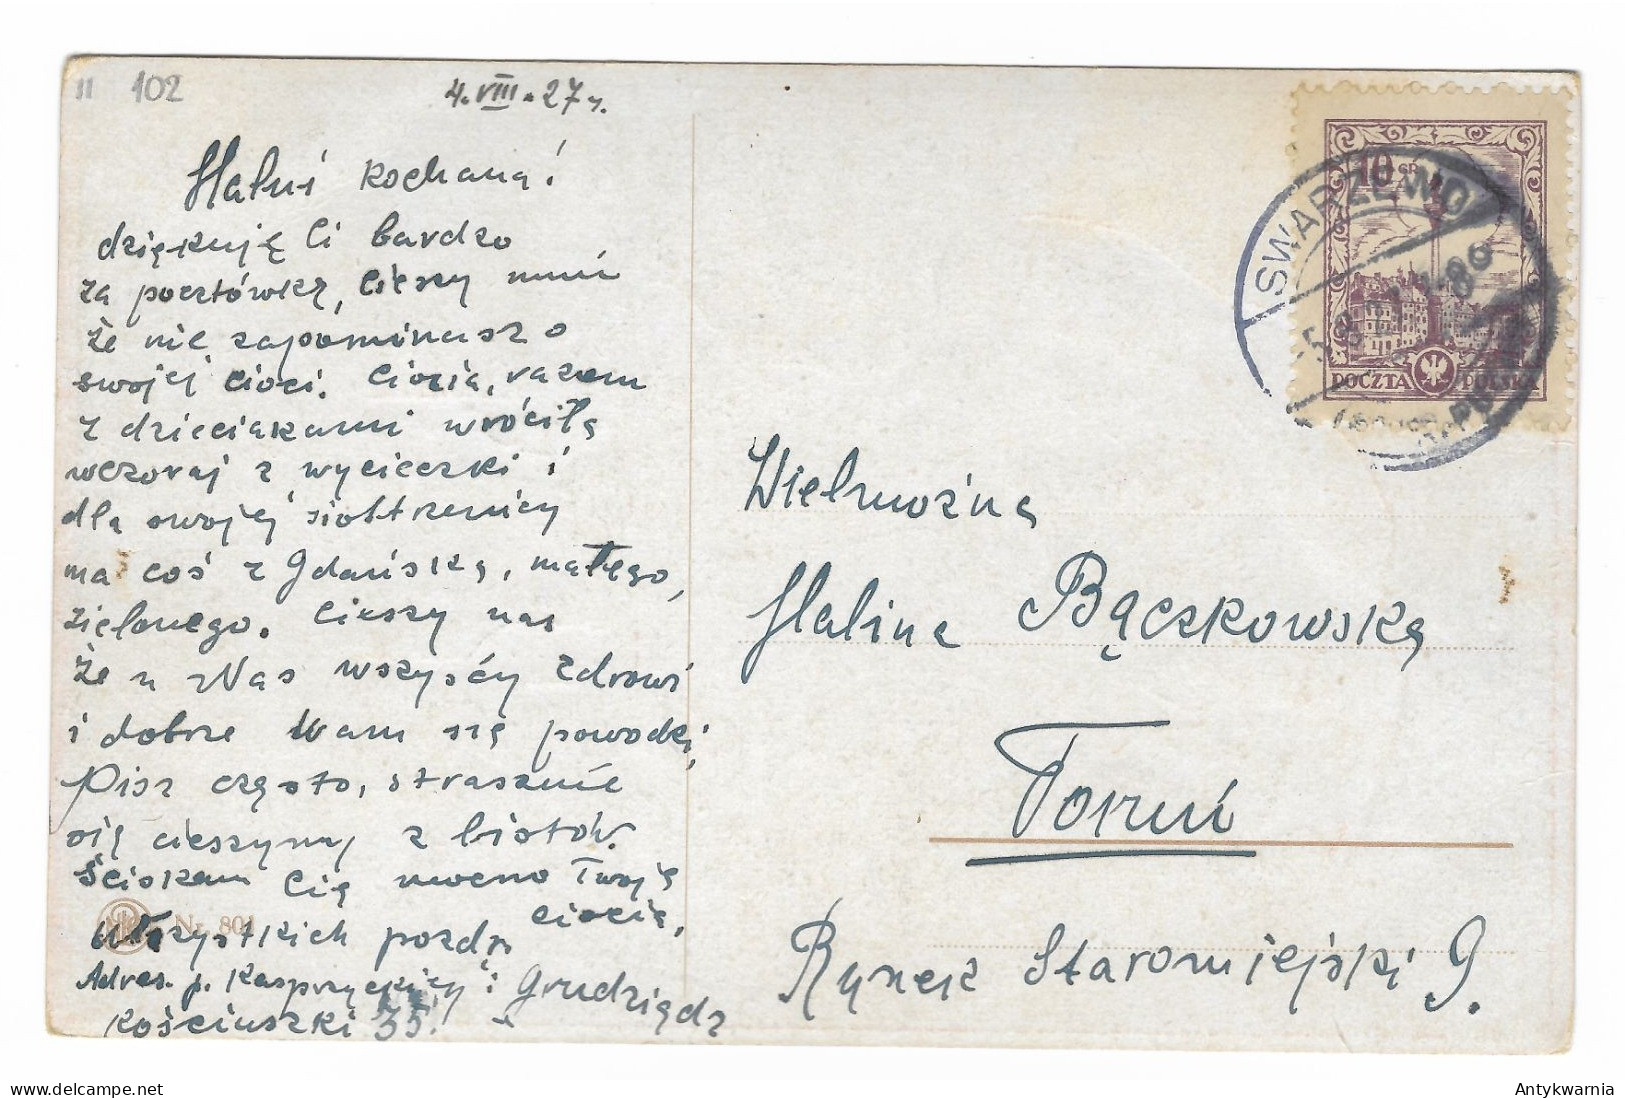 11 102
4. VIII. 27 r.
Haluś kochana!
dziękuję Ci bardzo
za pocztówkę, cieszy mnie
że nie zapominasz o
swojej cioci. Ciocia, razem
z dzieciakami wróciła
wczoraj z wycieczki i
dla swojej siostrzenicy
ma coś z Gdańska, małego,
zielonego. Cieszy nas
że u Was wszyscy zdrowi
i dobrze Wam się powodzi,
Pisz często, strasznie
się cieszymy z listów.
Ściskam Cię mocno Twoja
ciocia,
Nr. 801
Wszystkich pozdr.
Adres. p. Kasprzyckiej: Grudziądz
Kościuszki 35.
10 GR
POCZTA POLSKA
SWARZEWO
Wielmożna
Halina Bączkowska
Toruń
Rynek Staromiejski 9.
Antykwarnia
delcampe.net